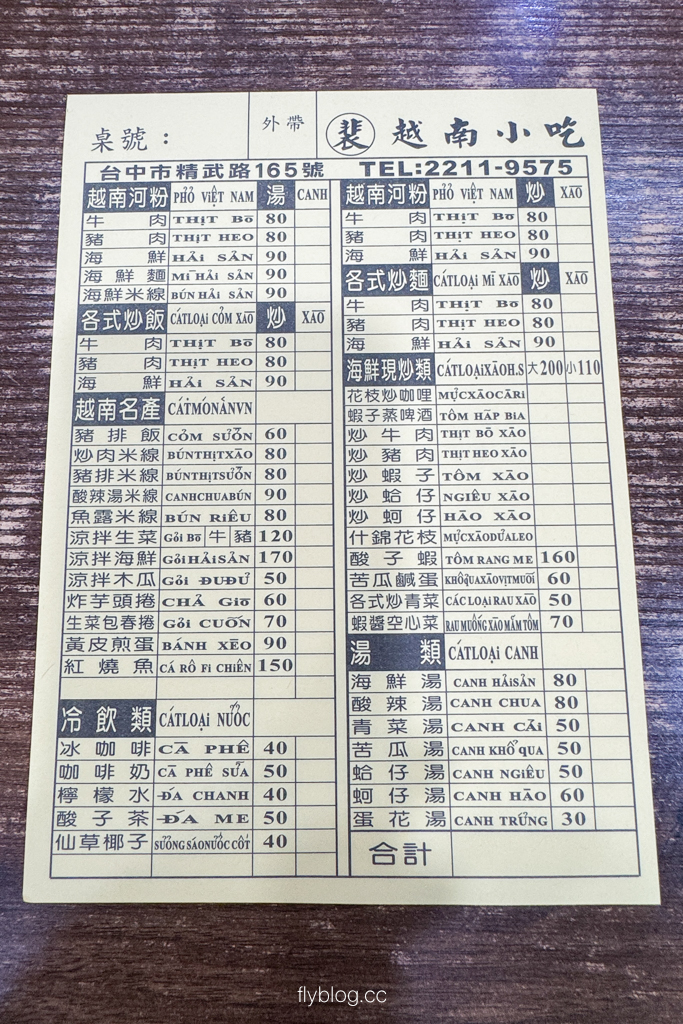 桌號： 外帶 裴 越南小吃
台中市精武路165號 TEL:2211-9575
越南河粉 PHỎ VIỆT NAM 湯 CANH
牛肉 THỊT Bō 80
豬肉 THỊT HEO 80
海鮮 HẢi SẢN 90
海鮮麵 MĪ HẢi SẢN 90
海鮮米線 BÚN HẢi SẢN 90
各式炒飯 CÁTLOẠi CỎM XĀO 炒 XĀO
牛肉 THỊT Bō 80
豬肉 THỊT HEO 80
海鮮 HẢi SẢN 90
越南名產 CÁTMÓNĂNVN
豬排飯 CỎM SUỔN 60
炒肉米線 BÚNTHỊTXĀO 80
豬排米線 BÚNTHỊTSUỔN 80
酸辣湯米線 CANHCHUABÚN 90
魚露米線 BÚN RiÊU 80
涼拌生菜 Gỏi Bō 牛豬 120
涼拌海鮮 GỏiHẢiSẢN 170
涼拌木瓜 Gỏi ĐUĐỦ 50
炸芋頭捲 CHẢ Giō 60
生菜包春捲 Gỏi CUỐN 70
黃皮煎蛋 BÁNH XĒO 90
紅燒魚 CÁ RÔ Fi CHiÊN 150
冷飲類 CÁTLOẠi NUỐC
冰咖啡 CĀ PHÊ 40
咖啡奶 CĀ PHÊ SỬA 50
檸檬水 ĐÁ CHANH 40
酸子茶 ĐÁ ME 50
仙草椰子 SUỎNG SÁONUỐC CỐT 40
越南河粉 PHỎ VIỆT NAM 炒 XĀO
牛肉 THỊT Bō 80
豬肉 THỊT HEO 80
海鮮 HẢi SẢN 90
各式炒麵 CÁTLOẠi MĪ XĀO 炒 XĀO
牛肉 THỊT Bō 80
豬肉 THỊT HEO 80
海鮮 HẢi SẢN 90
海鮮現炒類 CÁTLOẠiXĀOH.S 大200 小110
花枝炒咖哩 MỰCXĀOCĀRi
蝦子蒸啤酒 TÔM HẤP BiA
炒牛肉 THỊT BŌ XĀO
炒豬肉 THỊT HEO XĀO
炒蝦子 TÔM XĀO
炒蛤仔 NGIÊU XĀO
炒蚵仔 HĀO XĀO
什錦花枝 MỰCXĀODỦALEO
酸子蝦 TÔM RANG ME 160
苦瓜鹹蛋 KHỔQUAXĀOVỊTMUỐI 60
各式炒青菜 CÁC LOẠI RAU XĀO 50
蝦醬空心菜 RAU MUỐNG XĀO MẮM TÔM 70
湯類 CÁTLOẠI CANH
海鮮湯 CANH HẢiSẢN 80
酸辣湯 CANH CHUA 80
青菜湯 CANH CẢi 50
苦瓜湯 CANH KHỔ QUA 50
蛤仔湯 CANH NGIÊU 50
蚵仔湯 CANH HĀO 60
蛋花湯 CANH TRỨNG 30
合計
flyblog.cc